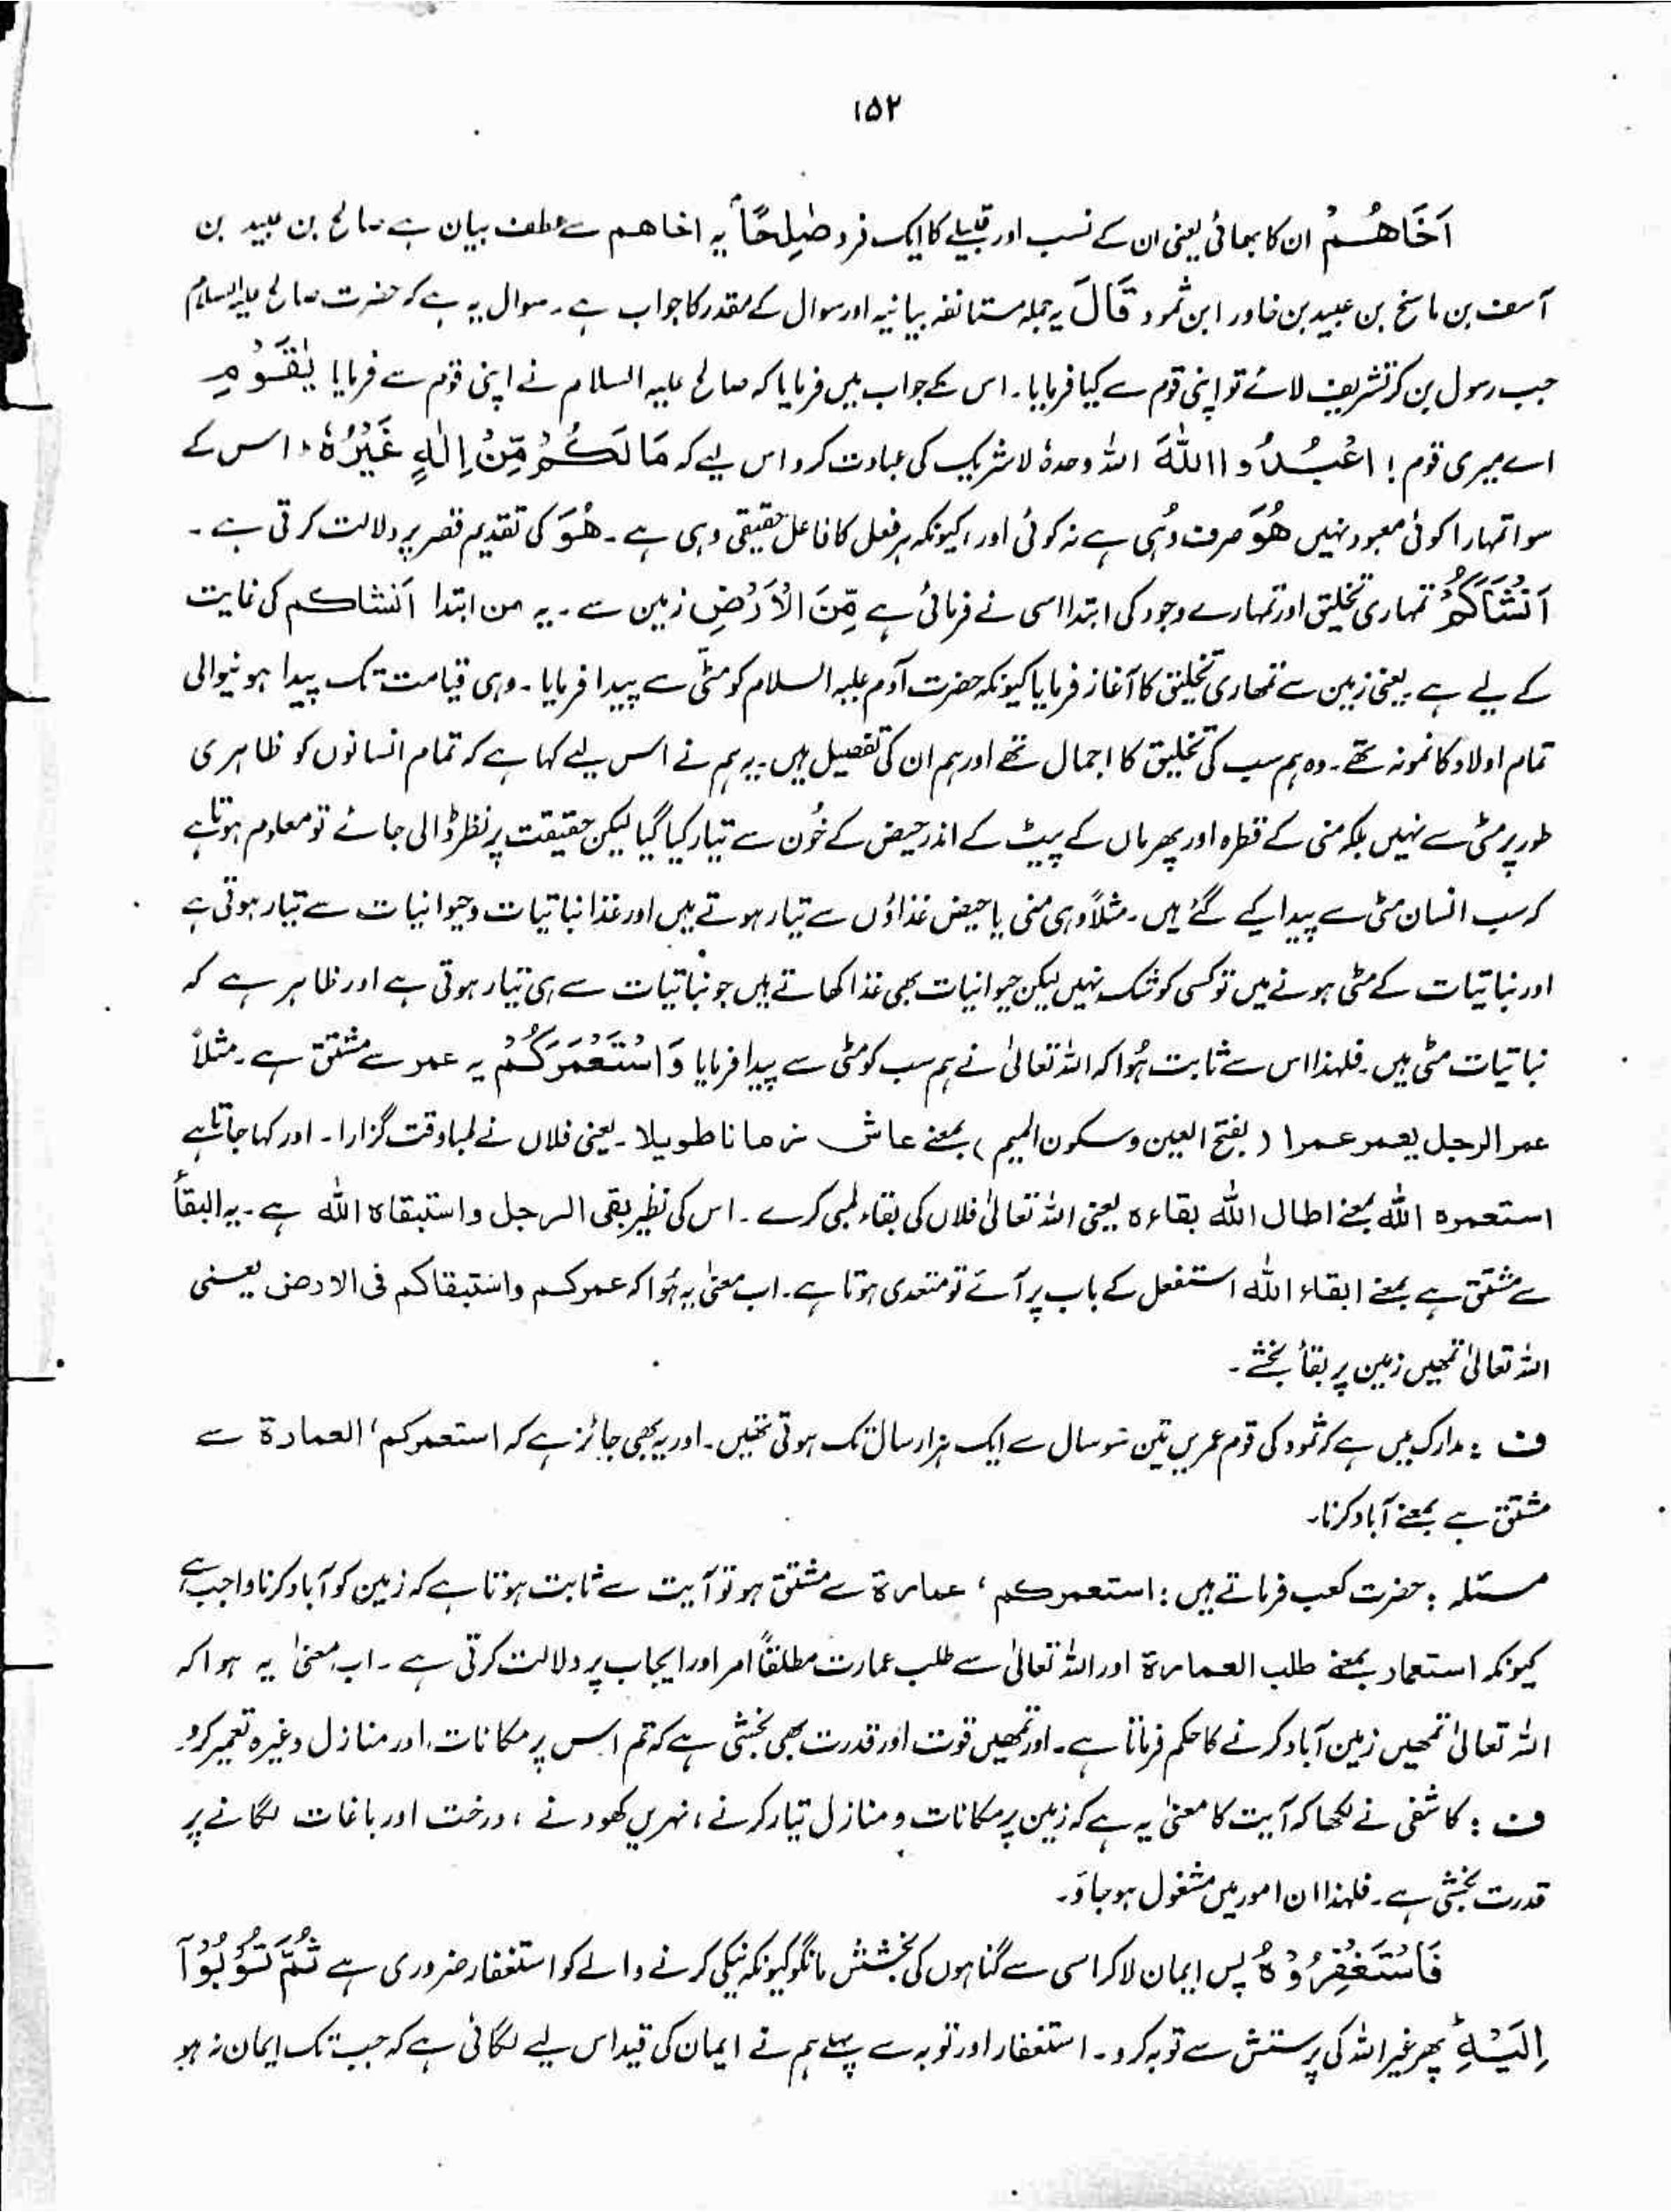 ۱۵۲
اَخَاهُمْ ان کا بھائی یعنی ان کے نسب اور قبیلے کا ایک فرد صٰلِحًا یہ اخاھم سے عطف بیان ہے صالح بن عبید بن
آسف بن ماسخ بن عبید بن خاور ابن ثمود قَالَ یہ جملہ مستانفہ بیانیہ اور سوال کے مقدر کا جواب ہے۔ سوال یہ ہے کہ حضرت صالح علیہ السلام
جب رسول بن کر تشریف لائے تو اپنی قوم سے کیا فرمایا۔ اس کے جواب میں فرمایا کہ صالح علیہ السلام نے اپنی قوم سے فرمایا یٰقَوْمِ
اے میری قوم! اعْبُدُوا اللّٰهَ اللہ وحدہٗ لاشریک کی عبادت کرو اس لیے کہ مَا لَكُمْ مِّنْ اِلٰهٍ غَیْرُهٗ ؕ اس کے
سوا تمہارا کوئی معبود نہیں هُوَ صرف وُہی ہے نہ کوئی اور، کیونکہ ہر فعل کا فاعل حقیقی وہی ہے۔ هُوَ کی تقدیم قصر پر دلالت کرتی ہے۔
اَنْشَاَكُمْ تمہاری تخلیق اور تمہارے وجود کی ابتدا اسی نے فرمائی ہے مِّنَ الْاَرْضِ زمین سے۔ یہ من ابتدا انشاکم کی غایت
کے لیے ہے۔ یعنی زمین سے تمھاری تخلیق کا آغاز فرمایا کیونکہ حضرت آدم علیہ السلام کو مٹی سے پیدا فرمایا۔ وہی قیامت تک پیدا ہونیوالی
تمام اولاد کا نمونہ تھے۔ وہ ہم سب کی تخلیق کا اجمال تھے اور ہم ان کی تفصیل ہیں۔ یہ ہم نے اس لیے کہا ہے کہ تمام انسانوں کو ظاہری
طور پر مٹی سے نہیں بلکہ منی کے قطرہ اور پھر ماں کے پیٹ کے اندر حیض کے خُون سے تیار کیا گیا لیکن حقیقت پر نظر ڈالی جائے تو معلوم ہوتا ہے
کہ سب انسان مٹی سے پیدا کیے گئے ہیں۔ مثلاً وہی منی یا حیض غذاؤں سے تیار ہوتے ہیں اور غذا نباتیات و حیوانیات سے تیار ہوتی ہے
اور نباتیات کے مٹی ہونے میں تو کسی کو شک نہیں لیکن حیوانیات بھی غذا کھاتے ہیں جو نباتیات سے ہی تیار ہوتی ہے اور ظاہر ہے کہ
نباتیات مٹی ہیں۔ فلہذا اس سے ثابت ہُوا کہ اللہ تعالیٰ نے ہم سب کو مٹی سے پیدا فرمایا وَاسْتَعْمَرَكُمْ یہ عمر سے مشتق ہے۔ مثلاً
عمر الرجل یعمر عمرا (بفتح العین و سکون المیم) بمعنے عاش زمانا طویلا۔ یعنی فلاں نے لمبا وقت گزارا۔ اور کہا جاتا ہے
استعمرہ اللہ بمعنے اطال اللہ بقاءہ یعنی اللہ تعالیٰ فلاں کی بقاء لمبی کرے۔ اس کی نظیر بقی الرجل واستبقاہ اللہ ہے۔ یہ البقأ
سے مشتق ہے بمعنے ابقاء اللہ استفعل کے باب پر آئے تو متعدی ہوتا ہے۔ اب معنٰی یہ ہُوا کہ عمرکم واستبقاکم فی الارض یعنی
اللہ تعالیٰ تمہیں زمین پر بقأ بخشے۔
ف : مدارک میں ہے کہ ثمود کی قوم عمریں تین سو سال سے ایک ہزار سال تک ہوتی تھیں۔ اور یہ بھی جائز ہے کہ استعمرکم، العمارۃ سے
مشتق ہے بمعنے آباد کرنا۔
مسئلہ : حضرت کعب فرماتے ہیں : استعمرکم، عمارۃ سے مشتق ہو تو آیت سے ثابت ہوتا ہے کہ زمین کو آباد کرنا واجب ہے
کیونکہ استعمار بمعنے طلب العمارۃ اور اللہ تعالیٰ سے طلب عمارت مطلقاً امر اور ایجاب پر دلالت کرتی ہے۔ اب معنیٰ یہ ہوا کہ
اللہ تعالیٰ تمھیں زمین آباد کرنے کا حکم فرماتا ہے۔ اور تمھیں قوت اور قدرت بھی بخشی ہے کہ تم اس پر مکانات اور منازل وغیرہ تعمیر کرو۔
ف : کاشفی نے لکھا کہ آیت کا معنیٰ یہ ہے کہ زمین پر مکانات و منازل تیار کرنے، نہریں کھودنے، درخت اور باغات لگانے پر
قدرت بخشی ہے۔ فلہذا ان امور میں مشغول ہو جاؤ۔
فَاسْتَغْفِرُوْهُ پس ایمان لا کر اسی سے گناہوں کی بخشش مانگو کیونکہ نیکی کرنے والے کو استغفار ضروری ہے ثُمَّ تُوْبُوْۤا
اِلَیْهِ ؕ پھر غیر اللہ کی پرستش سے توبہ کرو۔ استغفار اور توبہ سے پہلے ہم نے ایمان کی قید اس لیے لگائی ہے کہ جب تک ایمان نہ ہو